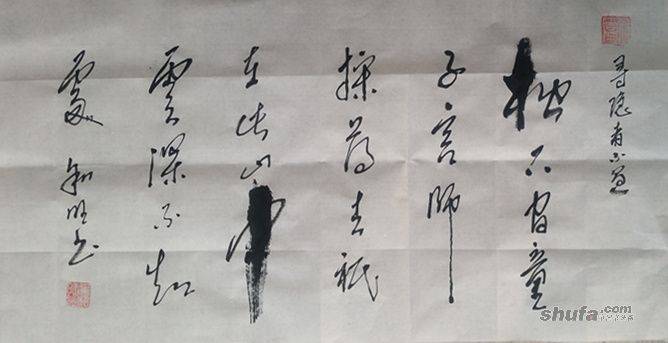 寻隐者不遇
松下问童
子言师
採药去祇
在此山中
云深不知
處
shufa.com